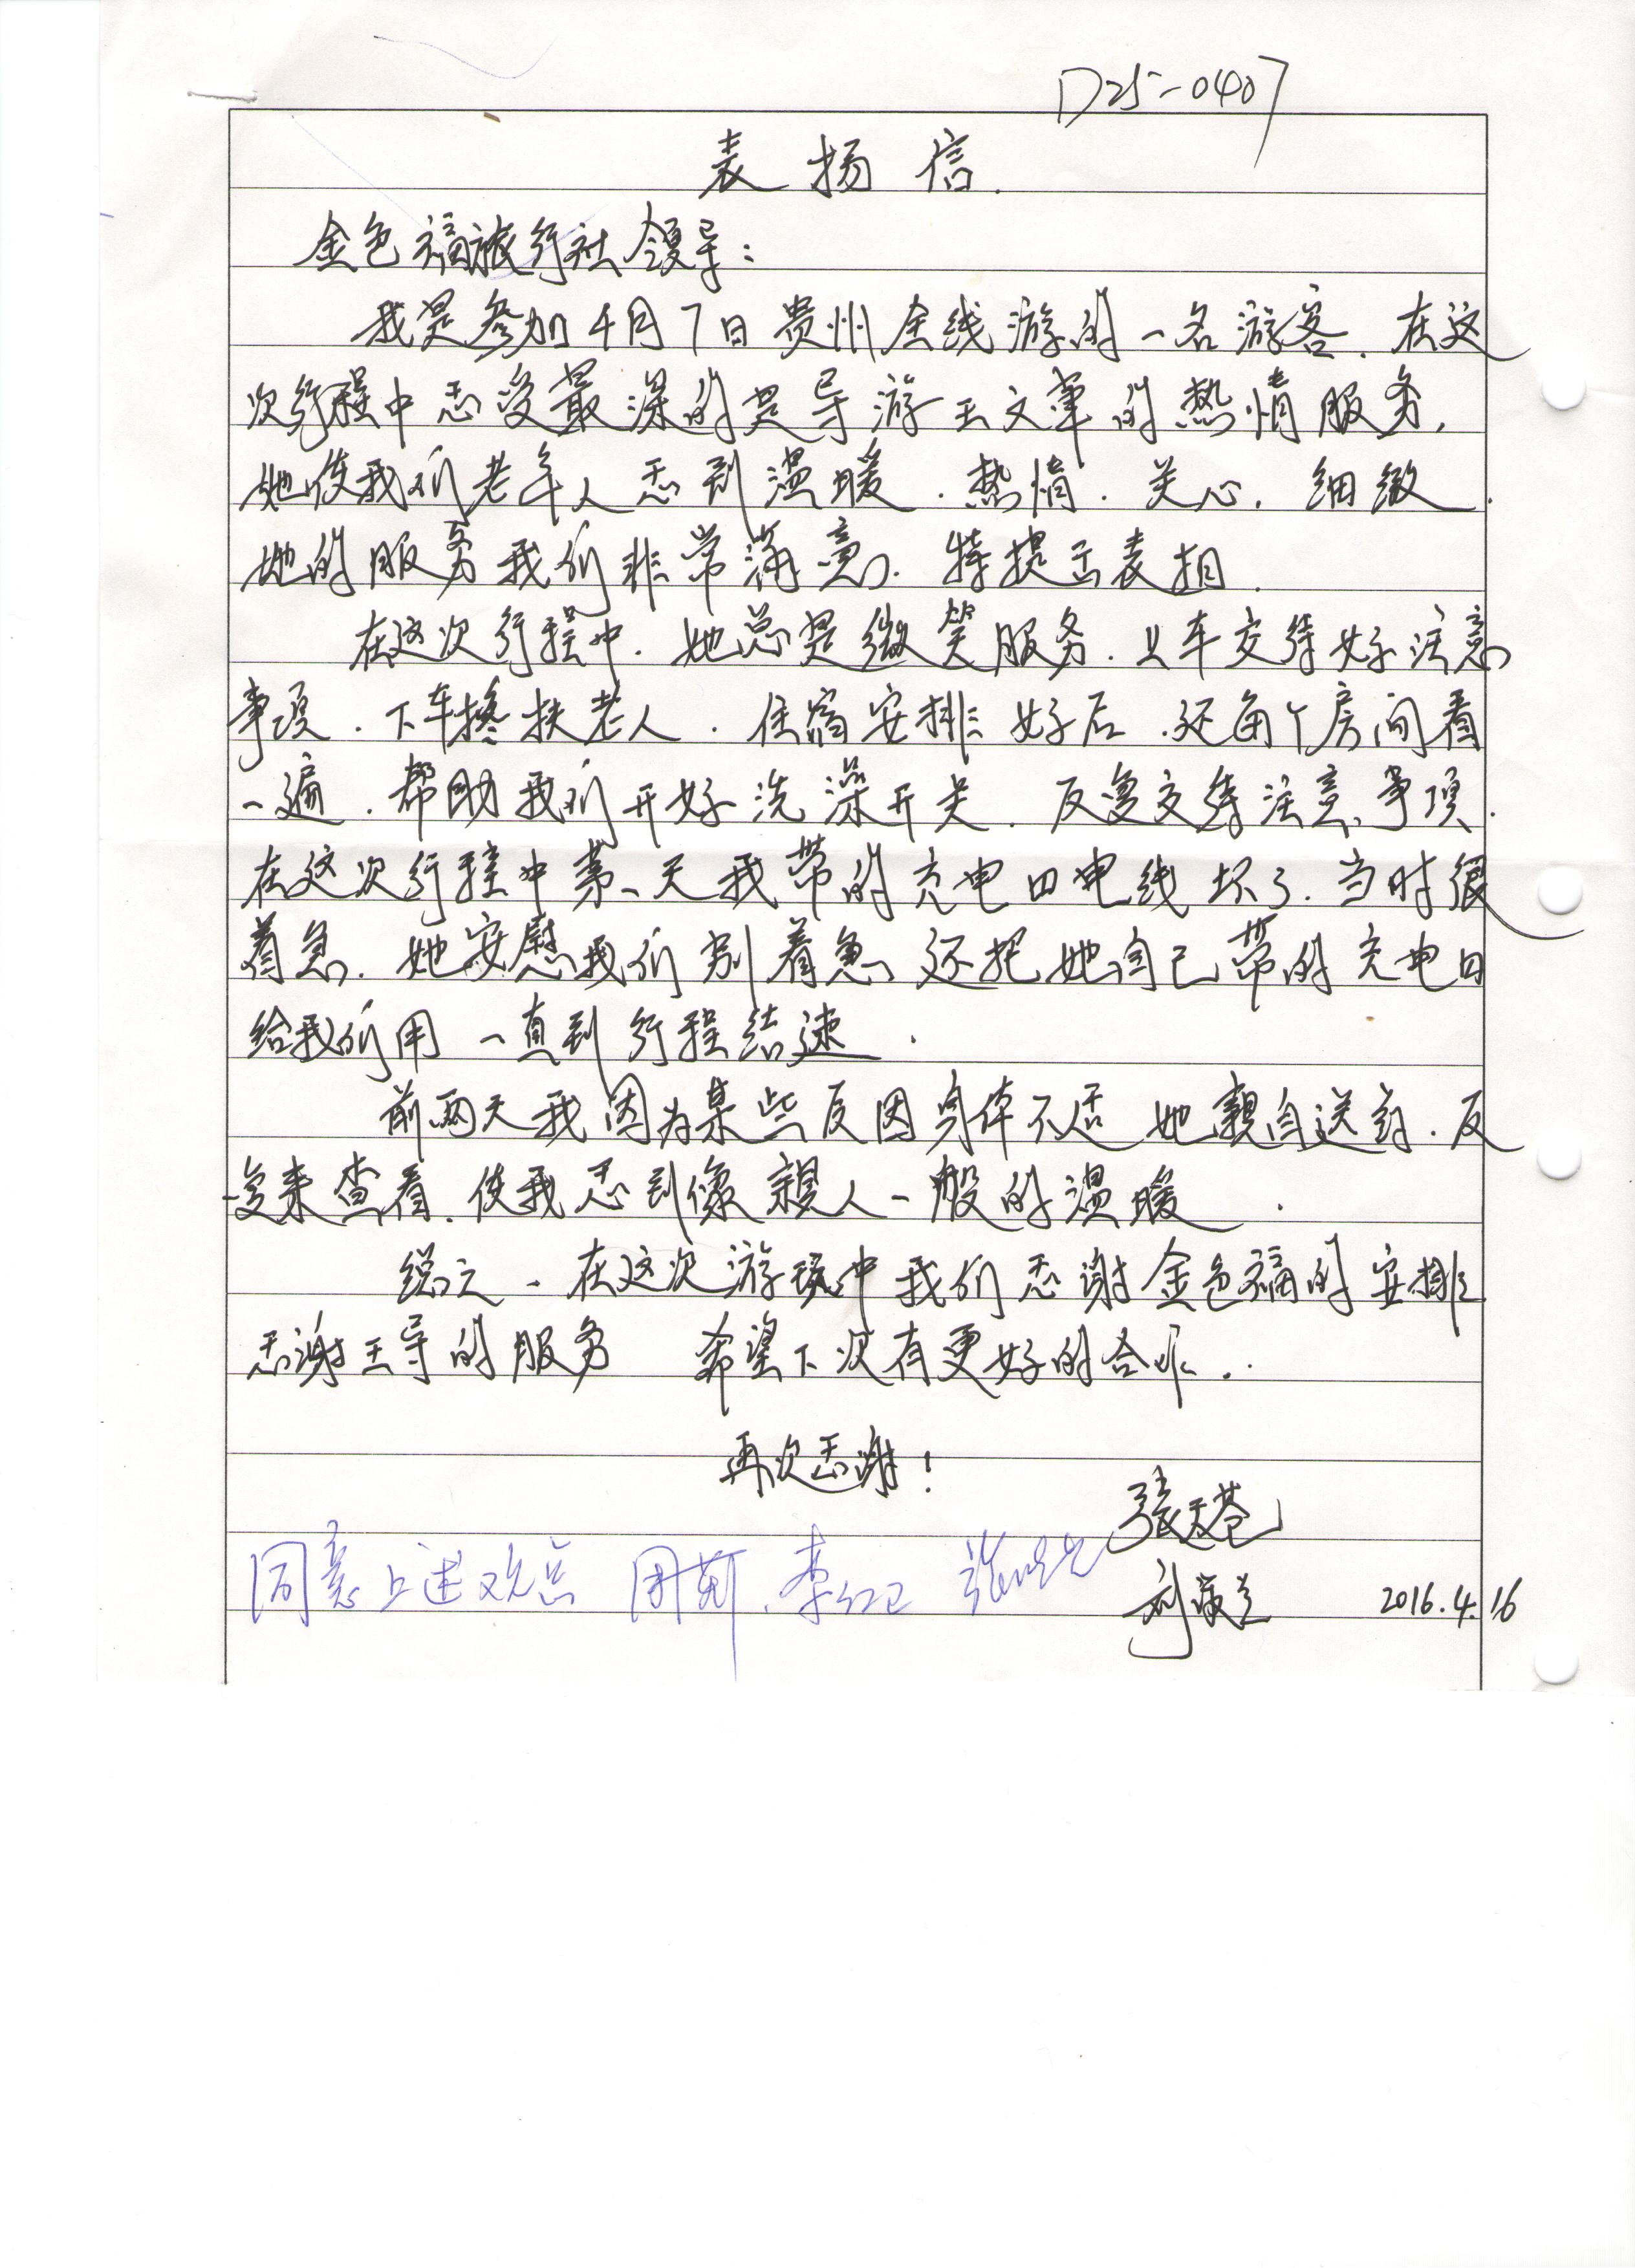 D25-0407
表扬信.
金色福旅行社领导：
我是参加4月7日贵州全线游的一名游客.在这
次行程中感受最深的是导游王文军的热情服务.
她使我们老年人感到温暖.热情.关心.细致.
她的服务我们非常满意.特提出表扬.
在这次行程中.她总是微笑服务.上车交待好注意
事项.下车搀扶老人.住宿安排好后.还每个房间看
一遍.帮助我们开好洗澡开关.反复交待注意事项.
在这次行程中第一天我带的充电口电线坏了.当时很
着急.她安慰我们别着急还把她自己带的充电口
给我们用一直到行程结速.
前两天我因为某些反因身体不适她亲自送药.反
复来查看.使我感到像亲人一般的温暖.
总之、在这次游玩中我们感谢金色福的安排
感谢王导的服务 希望下次有更好的合作..
再次感谢！
同意上述观点 李红卫
2016.4.16